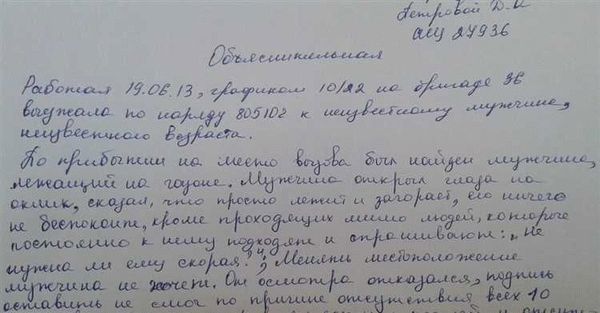 Петровой Д.И
АИЦ 27936
Объяснительная
Работая 19.06.13, графиком 10/22 на бригаде 36
выезжала по наряду 805102 к неизвестному мужчине,
неизвестного возраста.
По прибытии на место вызова был найден мужчина,
лежащий на газоне. Мужчина открыл глаза на
оклик, сказал, что просто лежит и загорает, его ничего
не беспокоит, кроме проходящих мимо людей, которые
постоянно к нему подходят и спрашивают: „Не
нужна ли ему скорая?", Менять местоположение
мужчина не хочет. Он осмотра отказался, подпись
оставить не смог по причине отсутствия всех 10